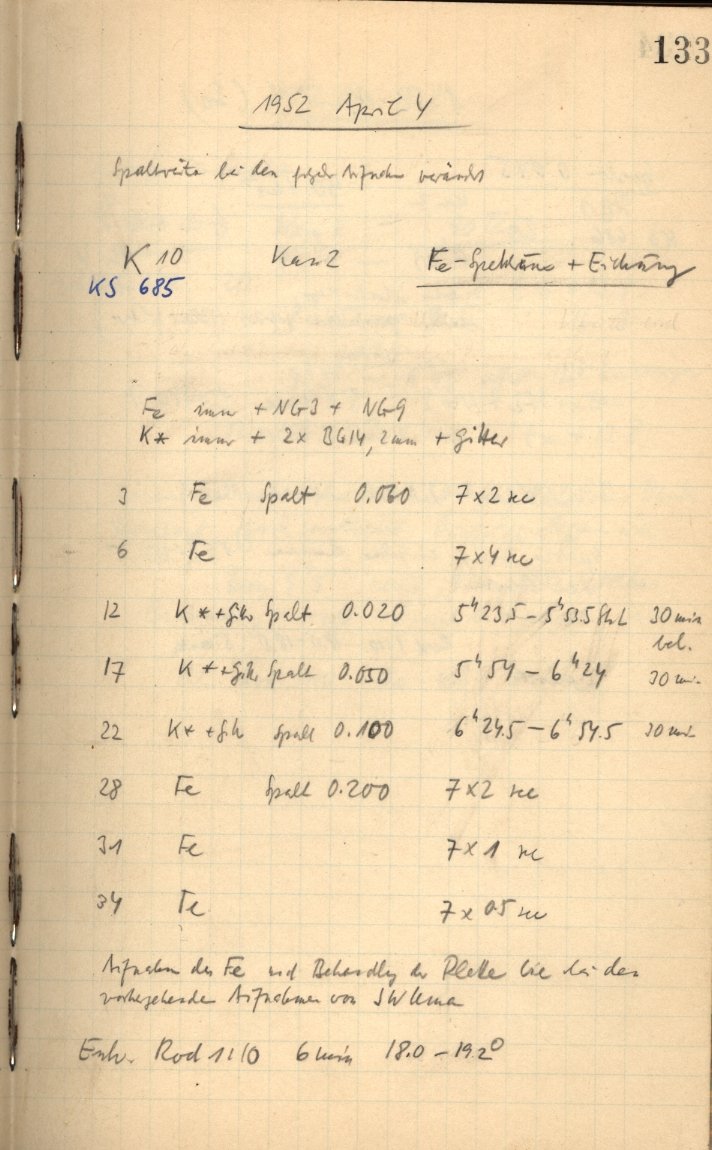 133
1952 April 4
Spaltweite bei den folgden Aufnahmen verändert
K 10 Kam 2 Fe-Spektrum + Eichung
KS 685
Fe immer + NG3 + NG9
K* immer + 2x BG14, 2mm + Gitter
3 Fe Spalt 0.060 7x2 sec
6 Fe 7x4 sec
12 K*+Gitr Spalt 0.020 5h23.5 - 5h53.5 30 min
bel.
17 K*+Gittr Spalt 0.050 5h54 - 6h24 30 min
22 K*+Gitr Spalt 0.100 6h24.5 - 6h54.5 30 min
28 Fe Spalt 0.200 7x2 sec
31 Fe 7x1 sec
34 Fe 7x05 sec
Aufnahmen des Fe und Behandlg der Platte wie bei den
vorhergehenden Aufnahmen von
Entw. Rod 1:10 6 min 18.0 - 19.2°